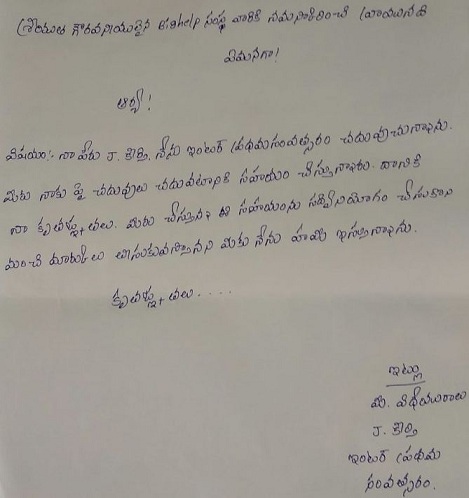 శ్రీయుత గౌరవనీయులైన Bighelp సంస్థ వారికి నమస్కరించి వ్రాయునది
ఏమనగా!
ఆర్య!
విషయం:- నా పేరు J. కీర్తి. నేను ఇంటర్ ప్రథమసంవత్సరం చదువుచున్నాను.
మీరు నాకు పై చదువులు చదువటానికి సహాయం చేస్తున్నారు. దానికి
నా కృతజ్ఞతలు. మీరు చేస్తున్న ఈ సహాయంను సద్వినియోగం చేసుకొని
మంచి మార్కులు తీసుకువస్తానని మీకు నేను హామి ఇస్తున్నాను.
కృతజ్ఞతలు....
ఇట్లు
మీ విధేయురాలు
J. కీర్తి
ఇంటర్ ప్రథమ
సంవత్సరం.